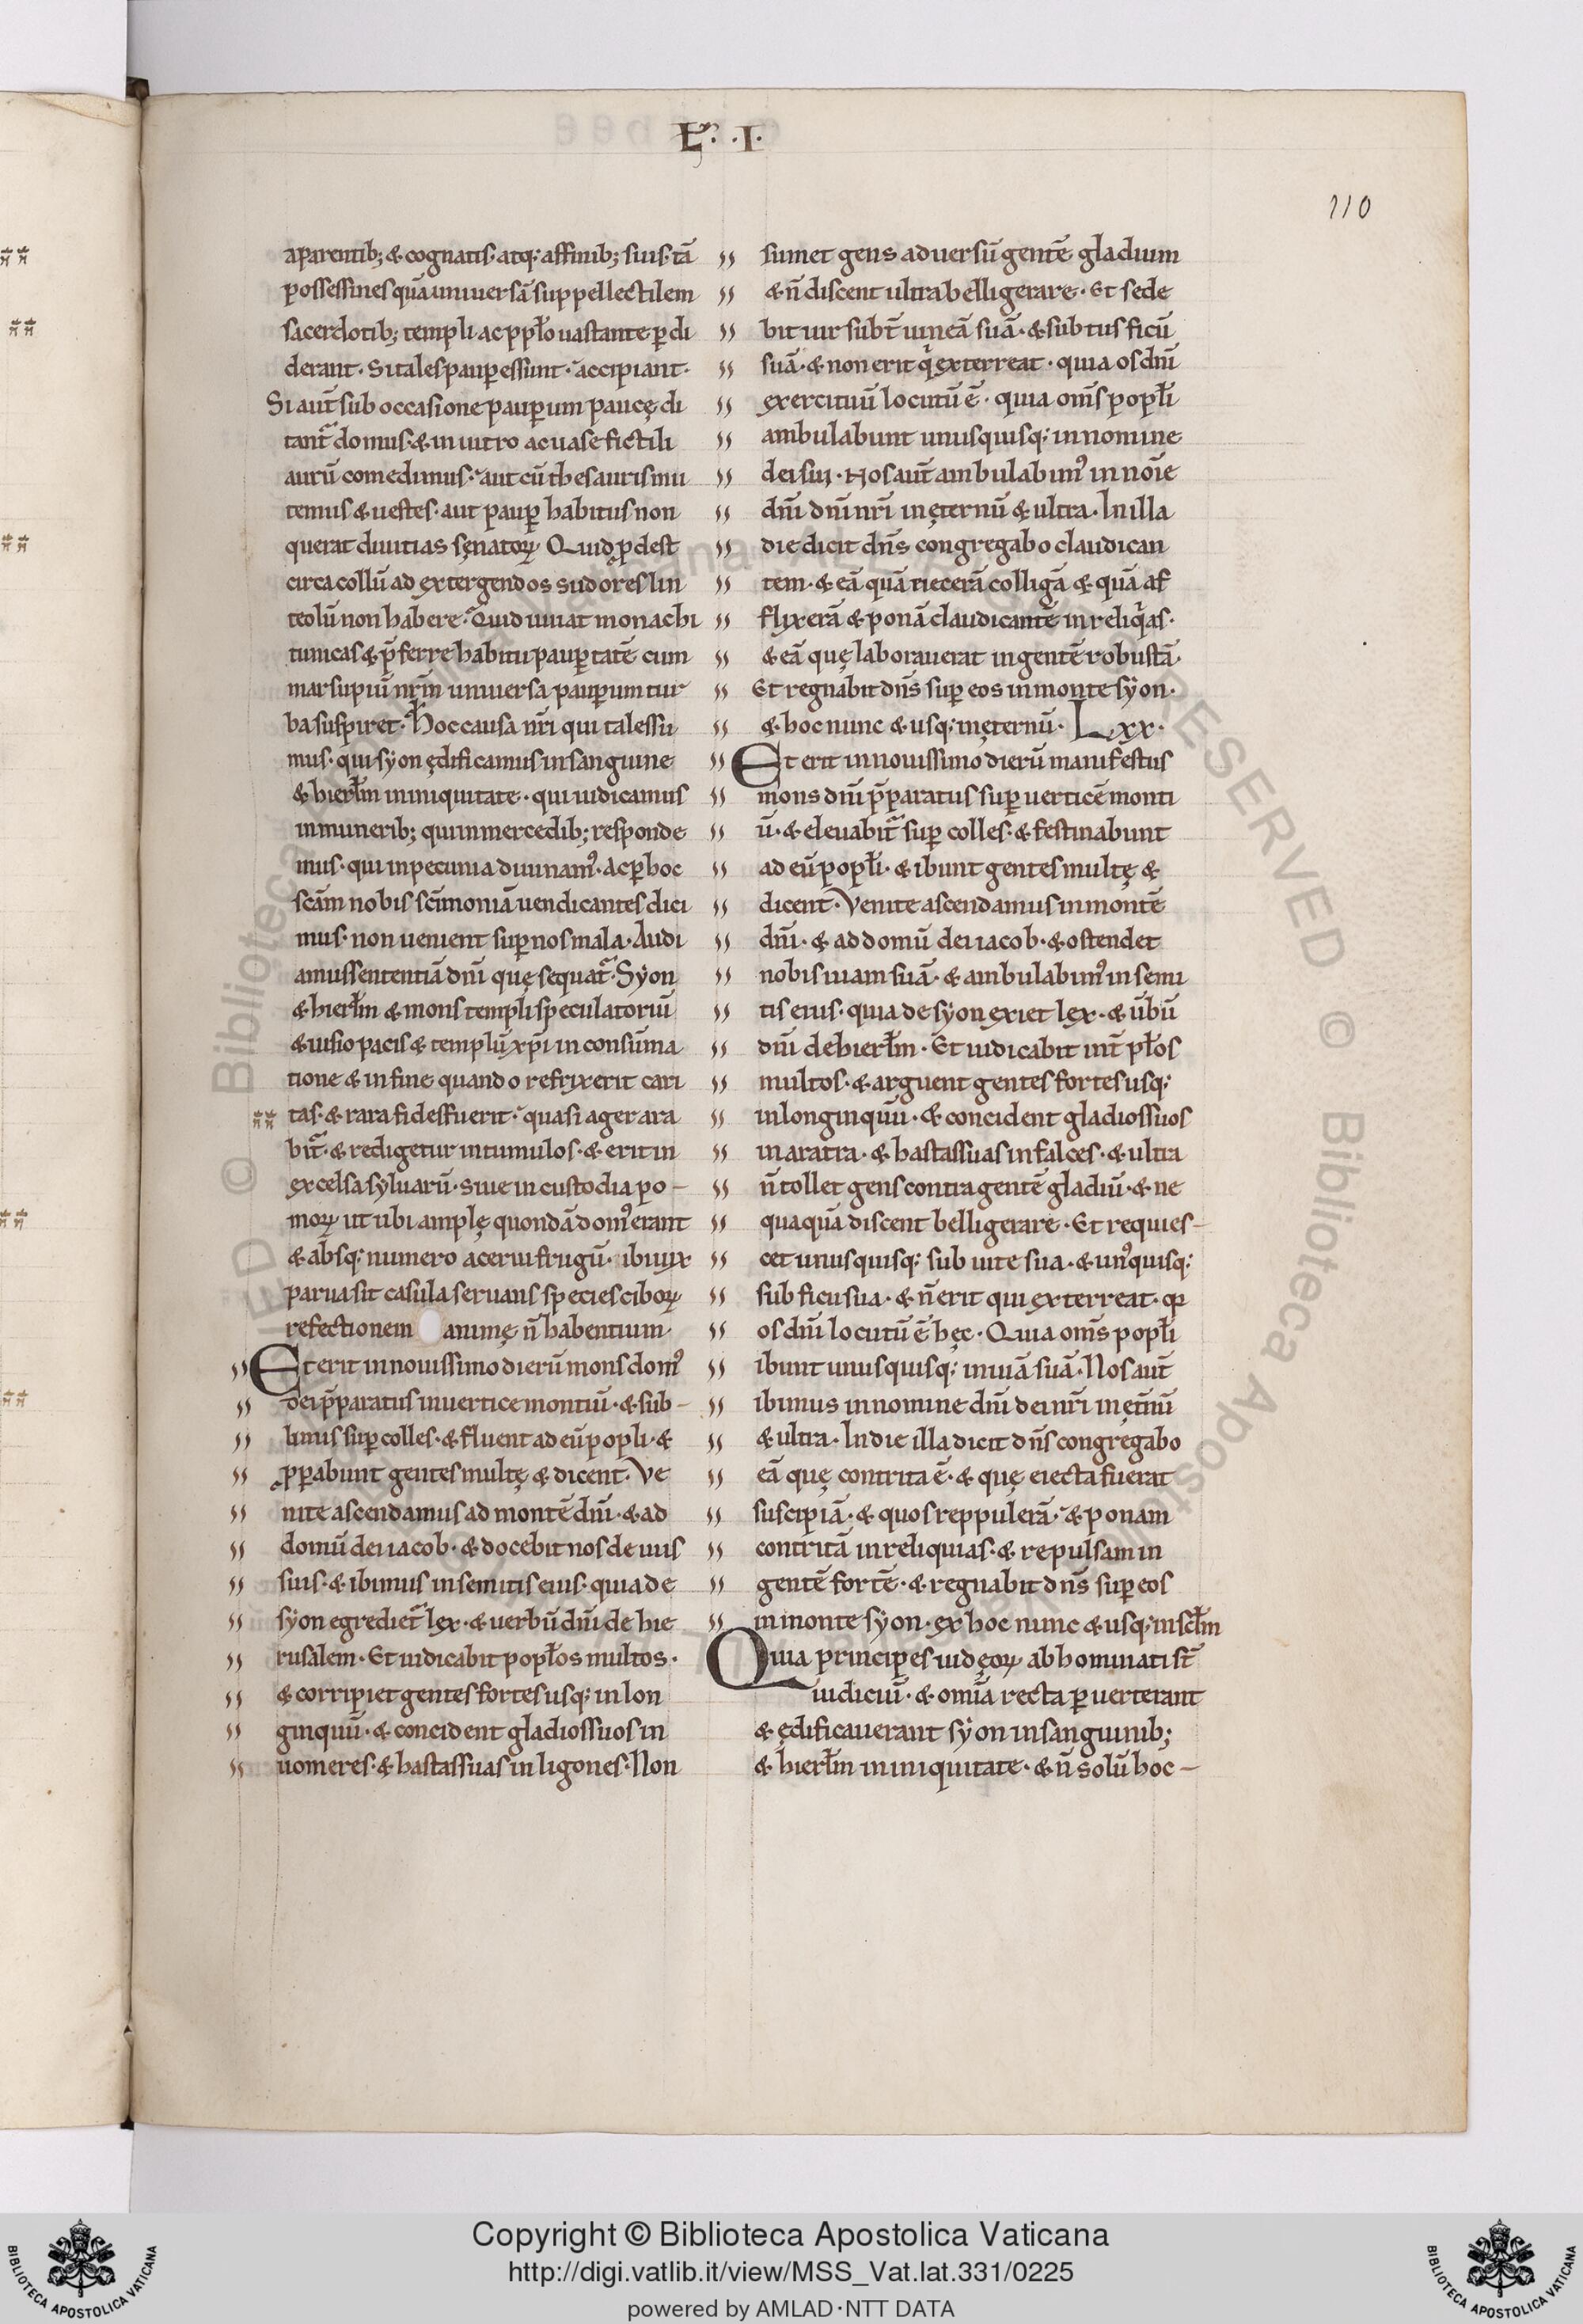 L̃. .I.
110
a parentib; & cognatis. atq; affinib; suis. tā
possessines quā uniuersā suppellectilem
sacerdotib; templi ac pplo uastante pdi
derant. Si tales paupes sunt. accipiant.
Si aut̄ sub occasione pauperum paucę di
tant᷑ domus. & in uitro ac uase fictili
aurū comedimus. aut cū thesauris mu
temus & uestes. aut paup habitus non
querat diuitias senatoꝝ. Quid pdest
circa collū ad extergendos sudores lin
teolū non habere. Quid iuuat monachi
tunicas & p̄ferre habitu paupertatē cum
marsupiū nr̄m uniuersa pauperum tur
ba suspiret. Hoc causa nr̄i qui tales su
mus. qui syon ędificamus in sanguine
& hierl̄m in iniquitate. qui iudicamus
in munerib; qui in mercedib; responde
mus. qui in pecunia diuinam᾽. Ac p hoc
scām nobis sc̄imoniā uendicantes dici
mus. non uenient sup nos mala. Audi
amus sententiā dn̄i quę sequat᷑. Syon
& hierl̄m & mons templi speculatoriū
& uisio pacis & templū xp̄i in consūma
tione & in fine quando refrixerit cari
tas. & rara fides fuerit. quasi ager ara
bit᷑. & redigetur in tumulos. & erit in
excelsa syluarū. siue in custodia po-
moꝝ ut ubi amplę quondā dom᾽ erant
& absq; numero acerui frugū. ibi uix
parua sit casula seruans species ciboꝝ
refectionem animę n̄ habentium.
Et erit in nouissimo dierū mons dom᾽
dei p̄paratus in uertice montiū. & sub-
limis sup colles. & fluent ad eū popli. &
pperabunt gentes multę & dicent. Ve
nite ascendamus ad montē dn̄i. & ad
domū dei iacob. & docebit nos de uiis
suis. & ibimus in semitis eius. quia de
syon egrediet᷑ lex. & uerbū dn̄i de hie
rusalem. Et iudicabit popl̄os multos.
& corripiet gentes fortes usq; in lon
ginquū. & concident gladios suos in
uomeres. & hastas suas in ligones. Non
sumet gens aduersū gentē gladium
& n̄ discent ultra belligerare. Et sede
bit uir subt̄ uineā suā. & subtus ficū
suā. & non erit q̇ exterreat. quia os dn̄i
exercituū locutū ē. quia om̄s popl̄i
ambulabunt unusquisq; in nomine
dei sui. Nos aut̄ ambulabim᾽ in noīe
dn̄i dn̄i nr̄i in ęternū & ultra. In illa
die dicit dn̄s congregabo claudican
tem. & eā quā eiecerā colligā & quā af
flixerā & ponā claudicantē in reliq̇as.
& eā quę laborauerat in gentē robustā.
Et regnabit dn̄s sup eos in monte syon.
& hoc nunc & usq; in ęternū. Lxx.
Et erit in nouissimo dierū manifestus
mons dn̄i p̄paratus sup uerticē monti
ū. & eleuabit᷑ sup colles. & festinabunt
ad eū popl̄i. & ibunt gentes multę &
dicent. Venite ascendamus in montē
dn̄i. & ad domū dei iacob. & ostendet
nobis uiam suā. & ambulabim᾽ in semi
tis eius. quia de syon exiet lex. & ūbū
dn̄i de hierl̄m. Et iudicabit int̄ pl̄os
multos. & arguent gentes fortes usq;
in longinquū. & concident gladios suos
in aratra. & hastas suas in falces. & ultra
n̄ tollet gens contra gentē gladiū. & ne
quaquā discent belligerare. Et requies-
cet unusquisq; sub uite sua. & un᾽quisq;
sub ficu sua. & n̄ erit qui exterreat. qꝑ
os dn̄i locutū ē hęc. Quia om̄s popl̄i
ibunt unusquisq; in uiā suā. Nos aut̄
ibimus in nomine dn̄i dei nr̄i in ęt̄nū
& ultra. In die illa dicit dn̄s congregabo
eā quę contrita ē. & quę eiecta fuerat
suscipiā. & quos reppulerā. & ponam
contritā in reliquias. & repulsam in
gentē fortē. & regnabit dn̄s sup eos
in monte syon. ex hoc nunc & usq; in scl̄m
Quia principes iudęoꝝ abhominati st̄
iudiciū. & omīa recta puerterant
& ędificauerant syon in sanguinib;
& hierl̄m in iniquitate. & n̄ solū hoc-
Copyright © Biblioteca Apostolica Vaticana
http://digi.vatlib.it/view/MSS_Vat.lat.331/0225
powered by AMLAD·NTT DATA